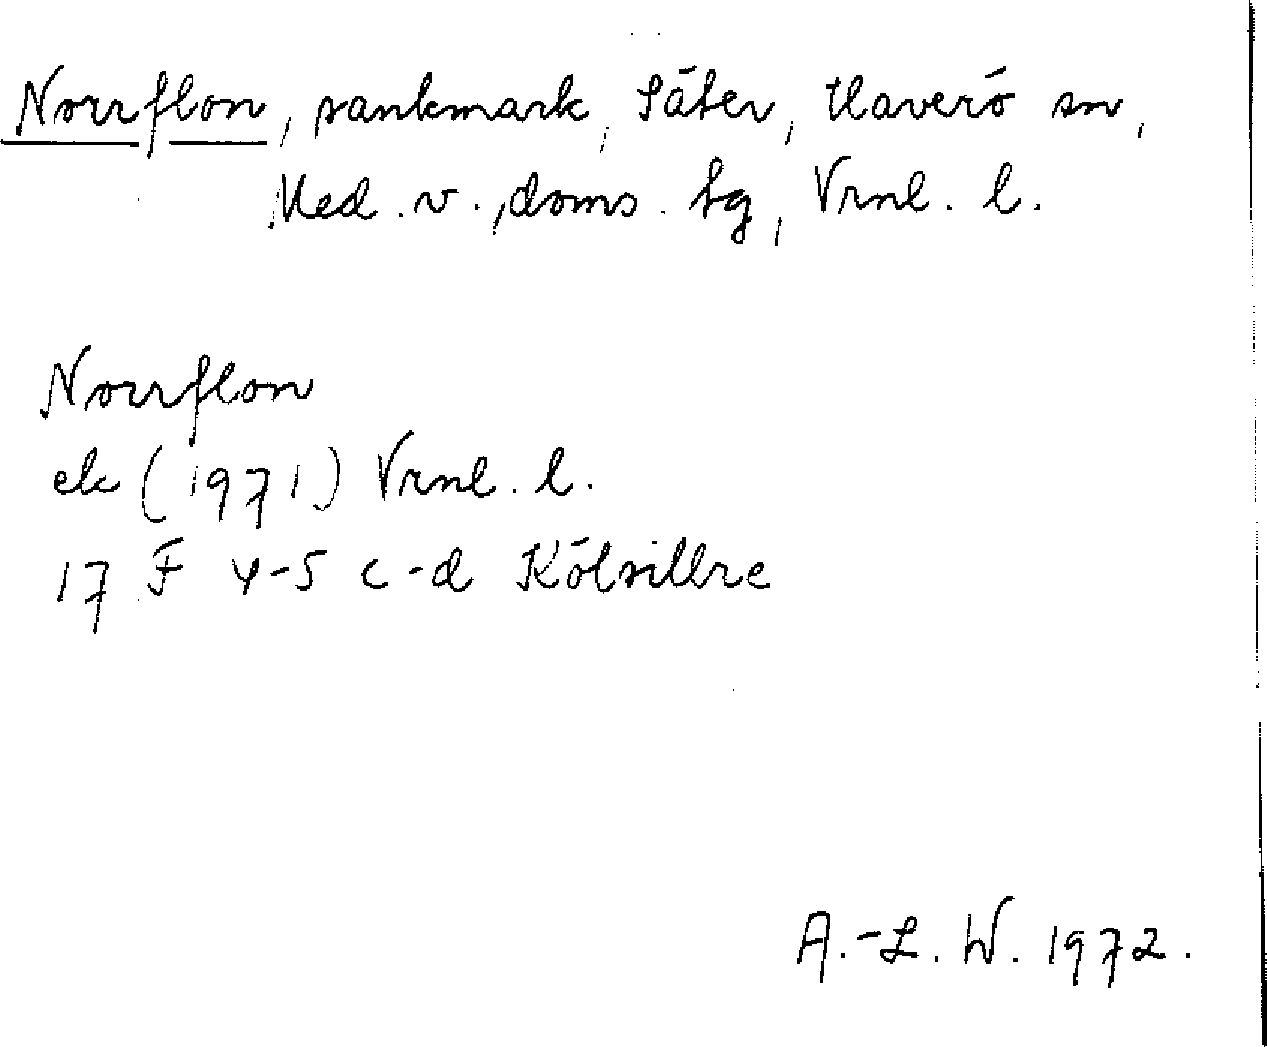 Norrflon, sankmark, Säter, Haverö sn,
Med. v., doms. sg, Vrnl. l.
Norrflon
ek (1971) Vrnl. l.
17 F 4-5 c-d Kölsillre
A.-L. W. 1972.